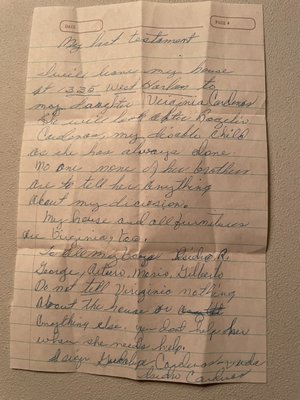 DATE
PAGE #
My last testament
I will leave my house
at 1335 West Harlan to
my daughter Virginia Cardenas
She will look after Rogelio
Cardenas, my disable child
as she has always done
No one none of her brothers
are to tell her anything
about my decision.
My house and all furnitures
are Virginia, too.
To all my boys
George, Arturo, Mario, Gilberto
Do not tell Virginia nothing
About the house or
Anything else. you don't help her
when she needs help.
Guadalupe Cardenas
Cardenas